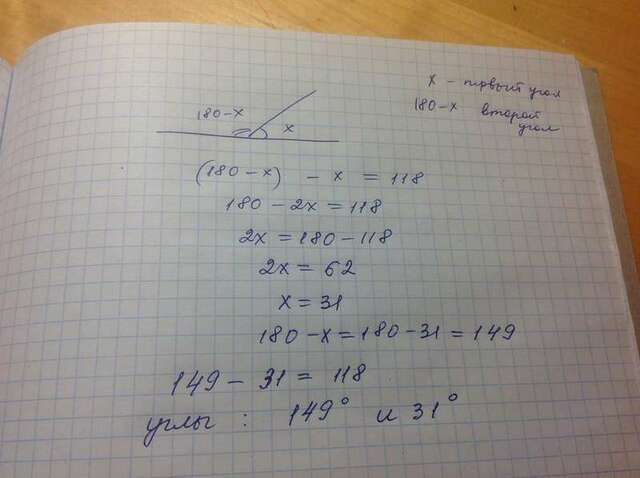 x - первый угол
180-x второй
угол
180-x
x
(180-x) - x = 118
180-2x=118
2x=180-118
2x=62
x=31
180-x=180-31=149
149-31=118
углы: 149° и 31°